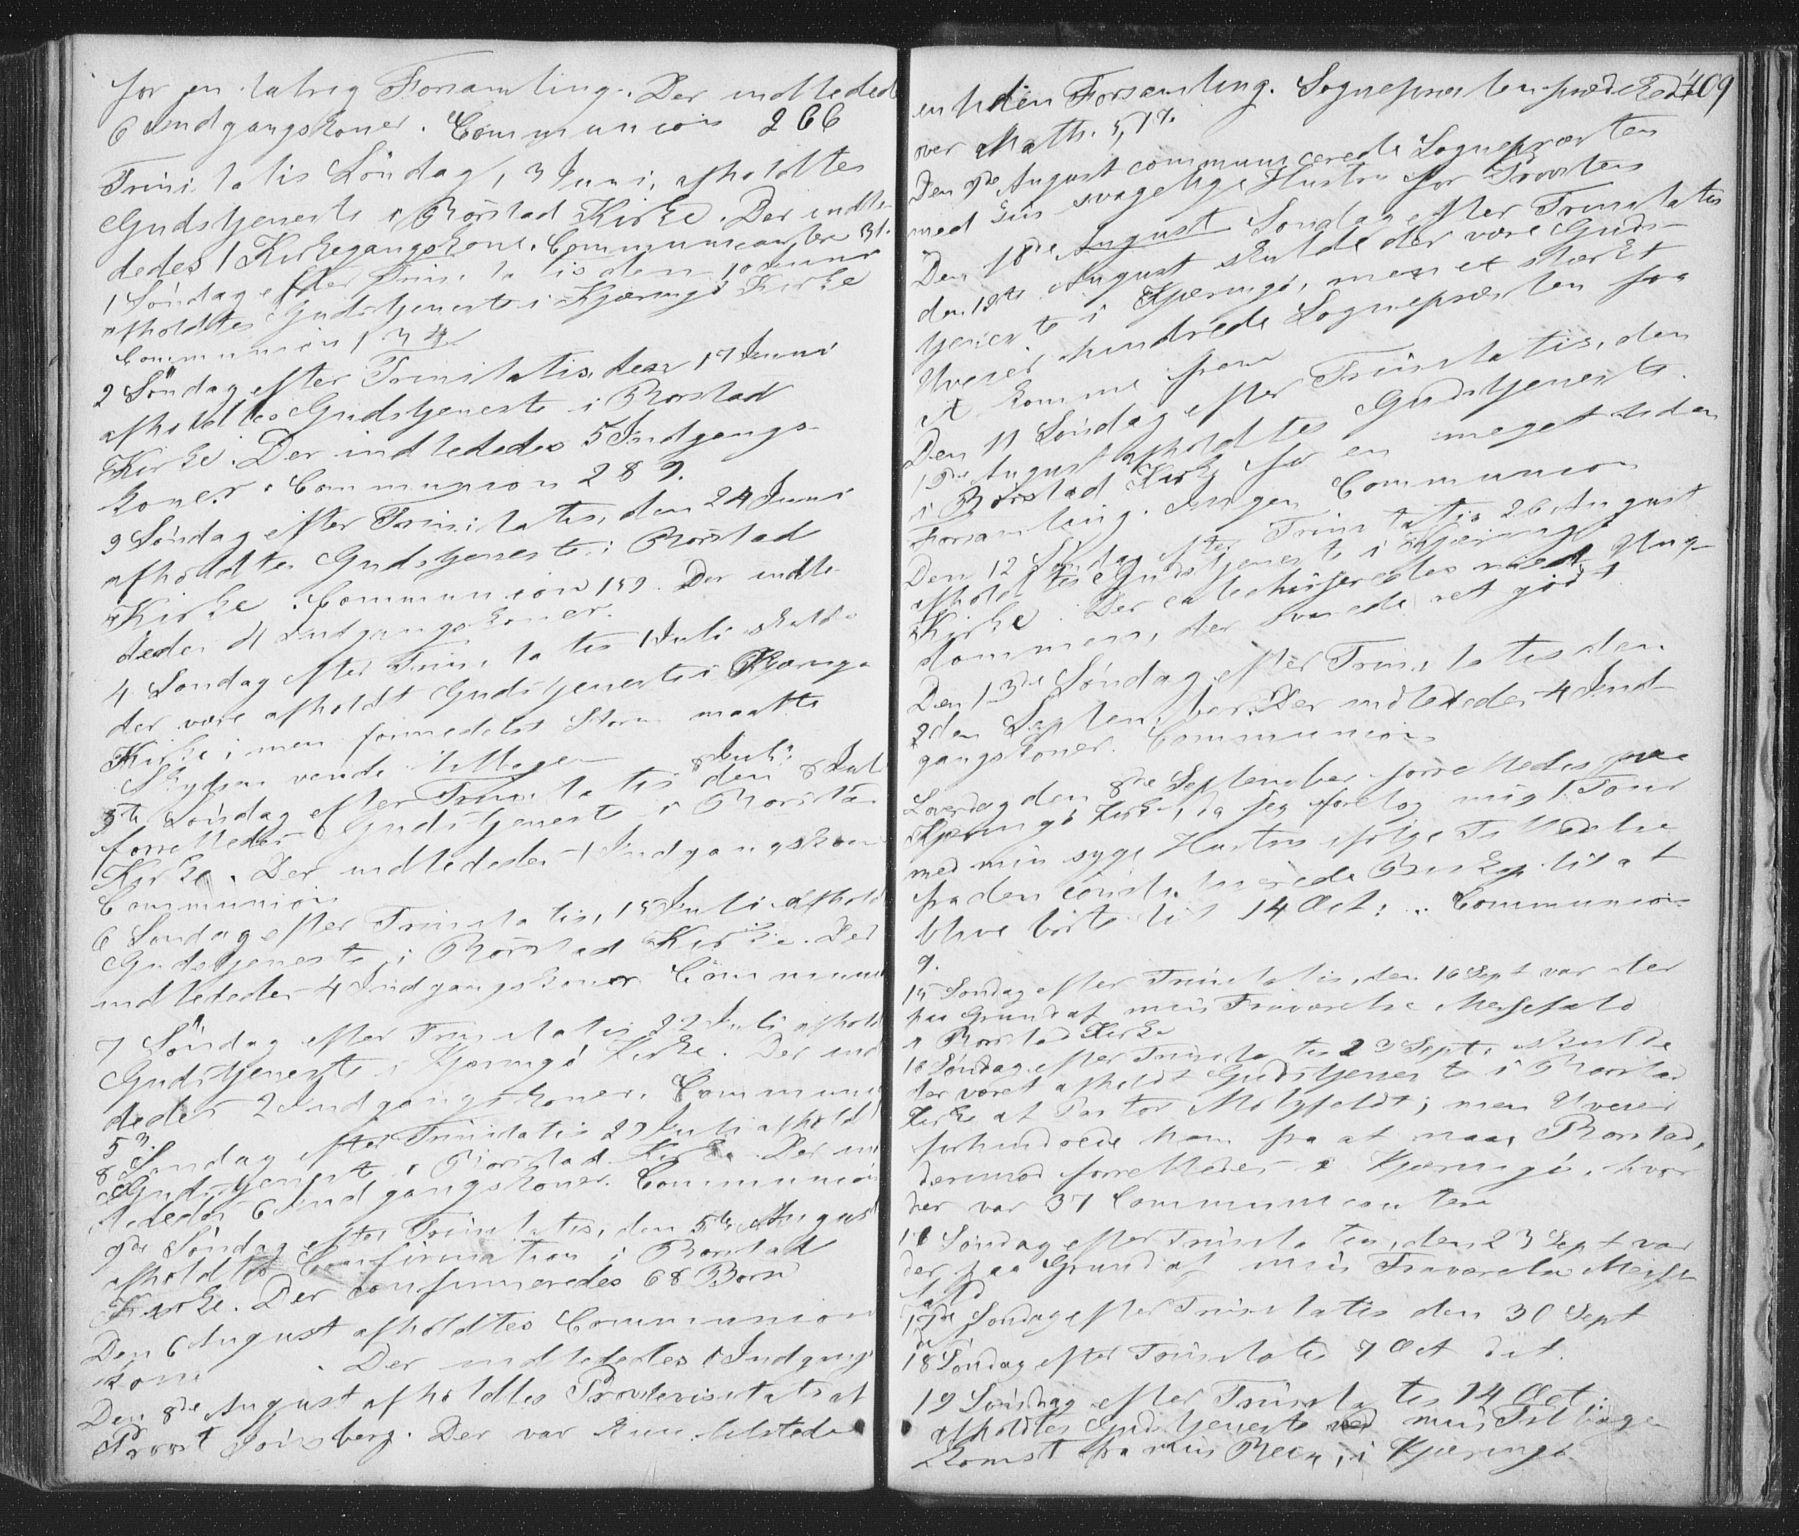 for en talrig Forsamling. Der indledede
6 Indgangskoner. Communion 266
Trinitatis Söndag, 3 Juni, afholdtes
Gudstjeneste i Rörstad Kirke. Der indle-
dedes 1 Kirkegangskone. Communicantere 31.
1 Söndag efter Trinitatis den 10 Juni
afholdtes Gudstjeneste i Kjæringö Kirke
Communion 134
2 Söndag efter Trinitatis, den 17 Juni
afholdtes Gudstjeneste i Rörstad
Kirke. Der indlededes 5 Indgangs-
koner. Communion 289.
3 Söndag efter Trinitatis, den 24 Juni
afholdtes Gudstjeneste i Rörstad
Kirke. Communion 159. Der indle-
dedes Indgangskoner.
4 Söndag efter Trinitatis 1 Juli skulde
der være afholdt Gudstjeneste i Kjæringö
Kirke; men formedelst Storm maatte
Skydsen vende tilbage
5te Söndag efter Trinitatis den 8 Juli
forrettedes Gudstjeneste i Rörstad
Kirke. Der indlededes 1 Indgangskone
Communion
6 Söndag efter Trinitatis, 15 Juli afhold
Gudstjeneste i Rörstad Kirke. Der
indlededes 4 Indgangskoner Commun
7 Söndag efter Trinitatis 22 Juli afhold
Gudstjeneste i Kjæringö Kirke. Der ind
dedes 2 Indgangskoner. Commun
53.
8 Söndag efter Trinitatis 29 Juli afhold
Gudstjeneste i Rörstad Kirke. Der in
lededes 6 Indgangskoner. Communion
9de Söndag efter Trinitatis, den 5te August
afholdtes Confirmation i Rörstad
Kirke. Der confirmeredes 68 Börn
Den 6 August afholdtes Communion
. Der indlededes 1 Indgangs
kone
Den 8de August afholdtes Provstevisitats af
Provst Jönsberg. Der var kun tilstede
en liden Forsamling. Sognepræsten prædikede 409
over Math. 5, 17.
Den 9de August communicerede Sognepræsten
med sin svagelige Hustru for Provsten
Den 10de August Söndag efter Trinitatis
den 12te August skulde der være Guds-
tjeneste i Kjæringö, men et stærkt
Uveier hindrede Sognepræsten fra
at komme frem
Den 11 Söndag efter Trinitatis, den
19de August afholdtes Gudstjeneste
i Rörstad Kirke for en meget liden
Forsamling. Ingen Communion
Den 12 Söndag efter Trinitatis 26 August
afholdtes Gudstjeneste i Kjæringö
Kirke. Der catechiseredes med Ung-
dommen, der svarede ret godt
Den 13de Söndag efter Trinitatis den
2den September. Der indlededes 4 Ind-
gangskoner. Communion
Löverdag den 8de September forrettedes paa
Kjæringö Kirke, da jeg foretog mig 1 Tour
med min syge Hustru ifölge Tilladelse
fra den constituerede Biskop til at
blive borte til 14 Oct: .. Communion
9.
15 Söndag efter Trinitatis, den 16 Sept var der
paa Grund af min Fraværelse Messefald
i Rörstad Kirke
16 Söndag efter Trinitatis 23 Sept: skulde
der været afholdt Gudstjeneste i Rörstad
Kirke af Pastor Moltzfeldt; men Uveier
forhindrede ham fra at naae Rörstad,
derimod forrettedes i Kjæringö, hvor
der var 37 Communicantere
16 Söndag efter Trinitatis, den 23 Sept var
der paa Grund af min Fraværelse Messe
fald
17de Söndag efter Trinitatis den 30 Sept
det
18 Söndag efter Trinitatis 7 Oct det.
19 Söndag efter Trinitatis 14 Oct:
afholdtes Gudstjeneste ved min Tilbage-
komst fra min Reise, i Kjæringö